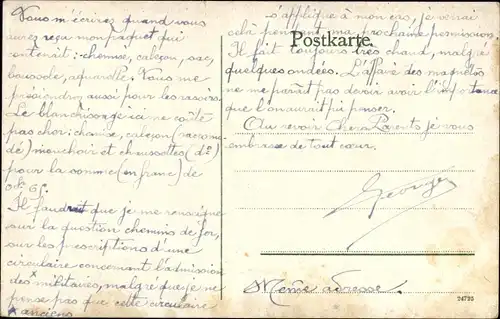 Vous m'écrirez quand vous
aurez reçu mon paquet qui
contenait : chemise, caleçon, sac,
boussole, aquarelle. Vous me
préviendrez aussi pour les rasoirs.
Le blanchissage ici ne coûte
pas cher : chemise, caleçon (raccommo
dé) mouchoir et chaussettes (dº)
pour la somme (en franc) de
0f 65.
Il faudrait que je me renseigne
sur la question chemins de fer,
sur les prescriptions d'une
circulaire concernant l'admission
des ˣ militaires, malgré que je ne
pense pas que cette circulaire
x anciens
s'applique à mon cas, je verrai
celà pendant ma prochaine permission.
Postkarte.
Il fait toujours très chaud, malgré
quelques ondées. L'affaire des magnétos
ne me paraît pas devoir avoir l'importance
que l'on aurait pu penser.
Au revoir Chers Parents je vous
embrasse de tout cœur.
Georges
Même adresse.
24723